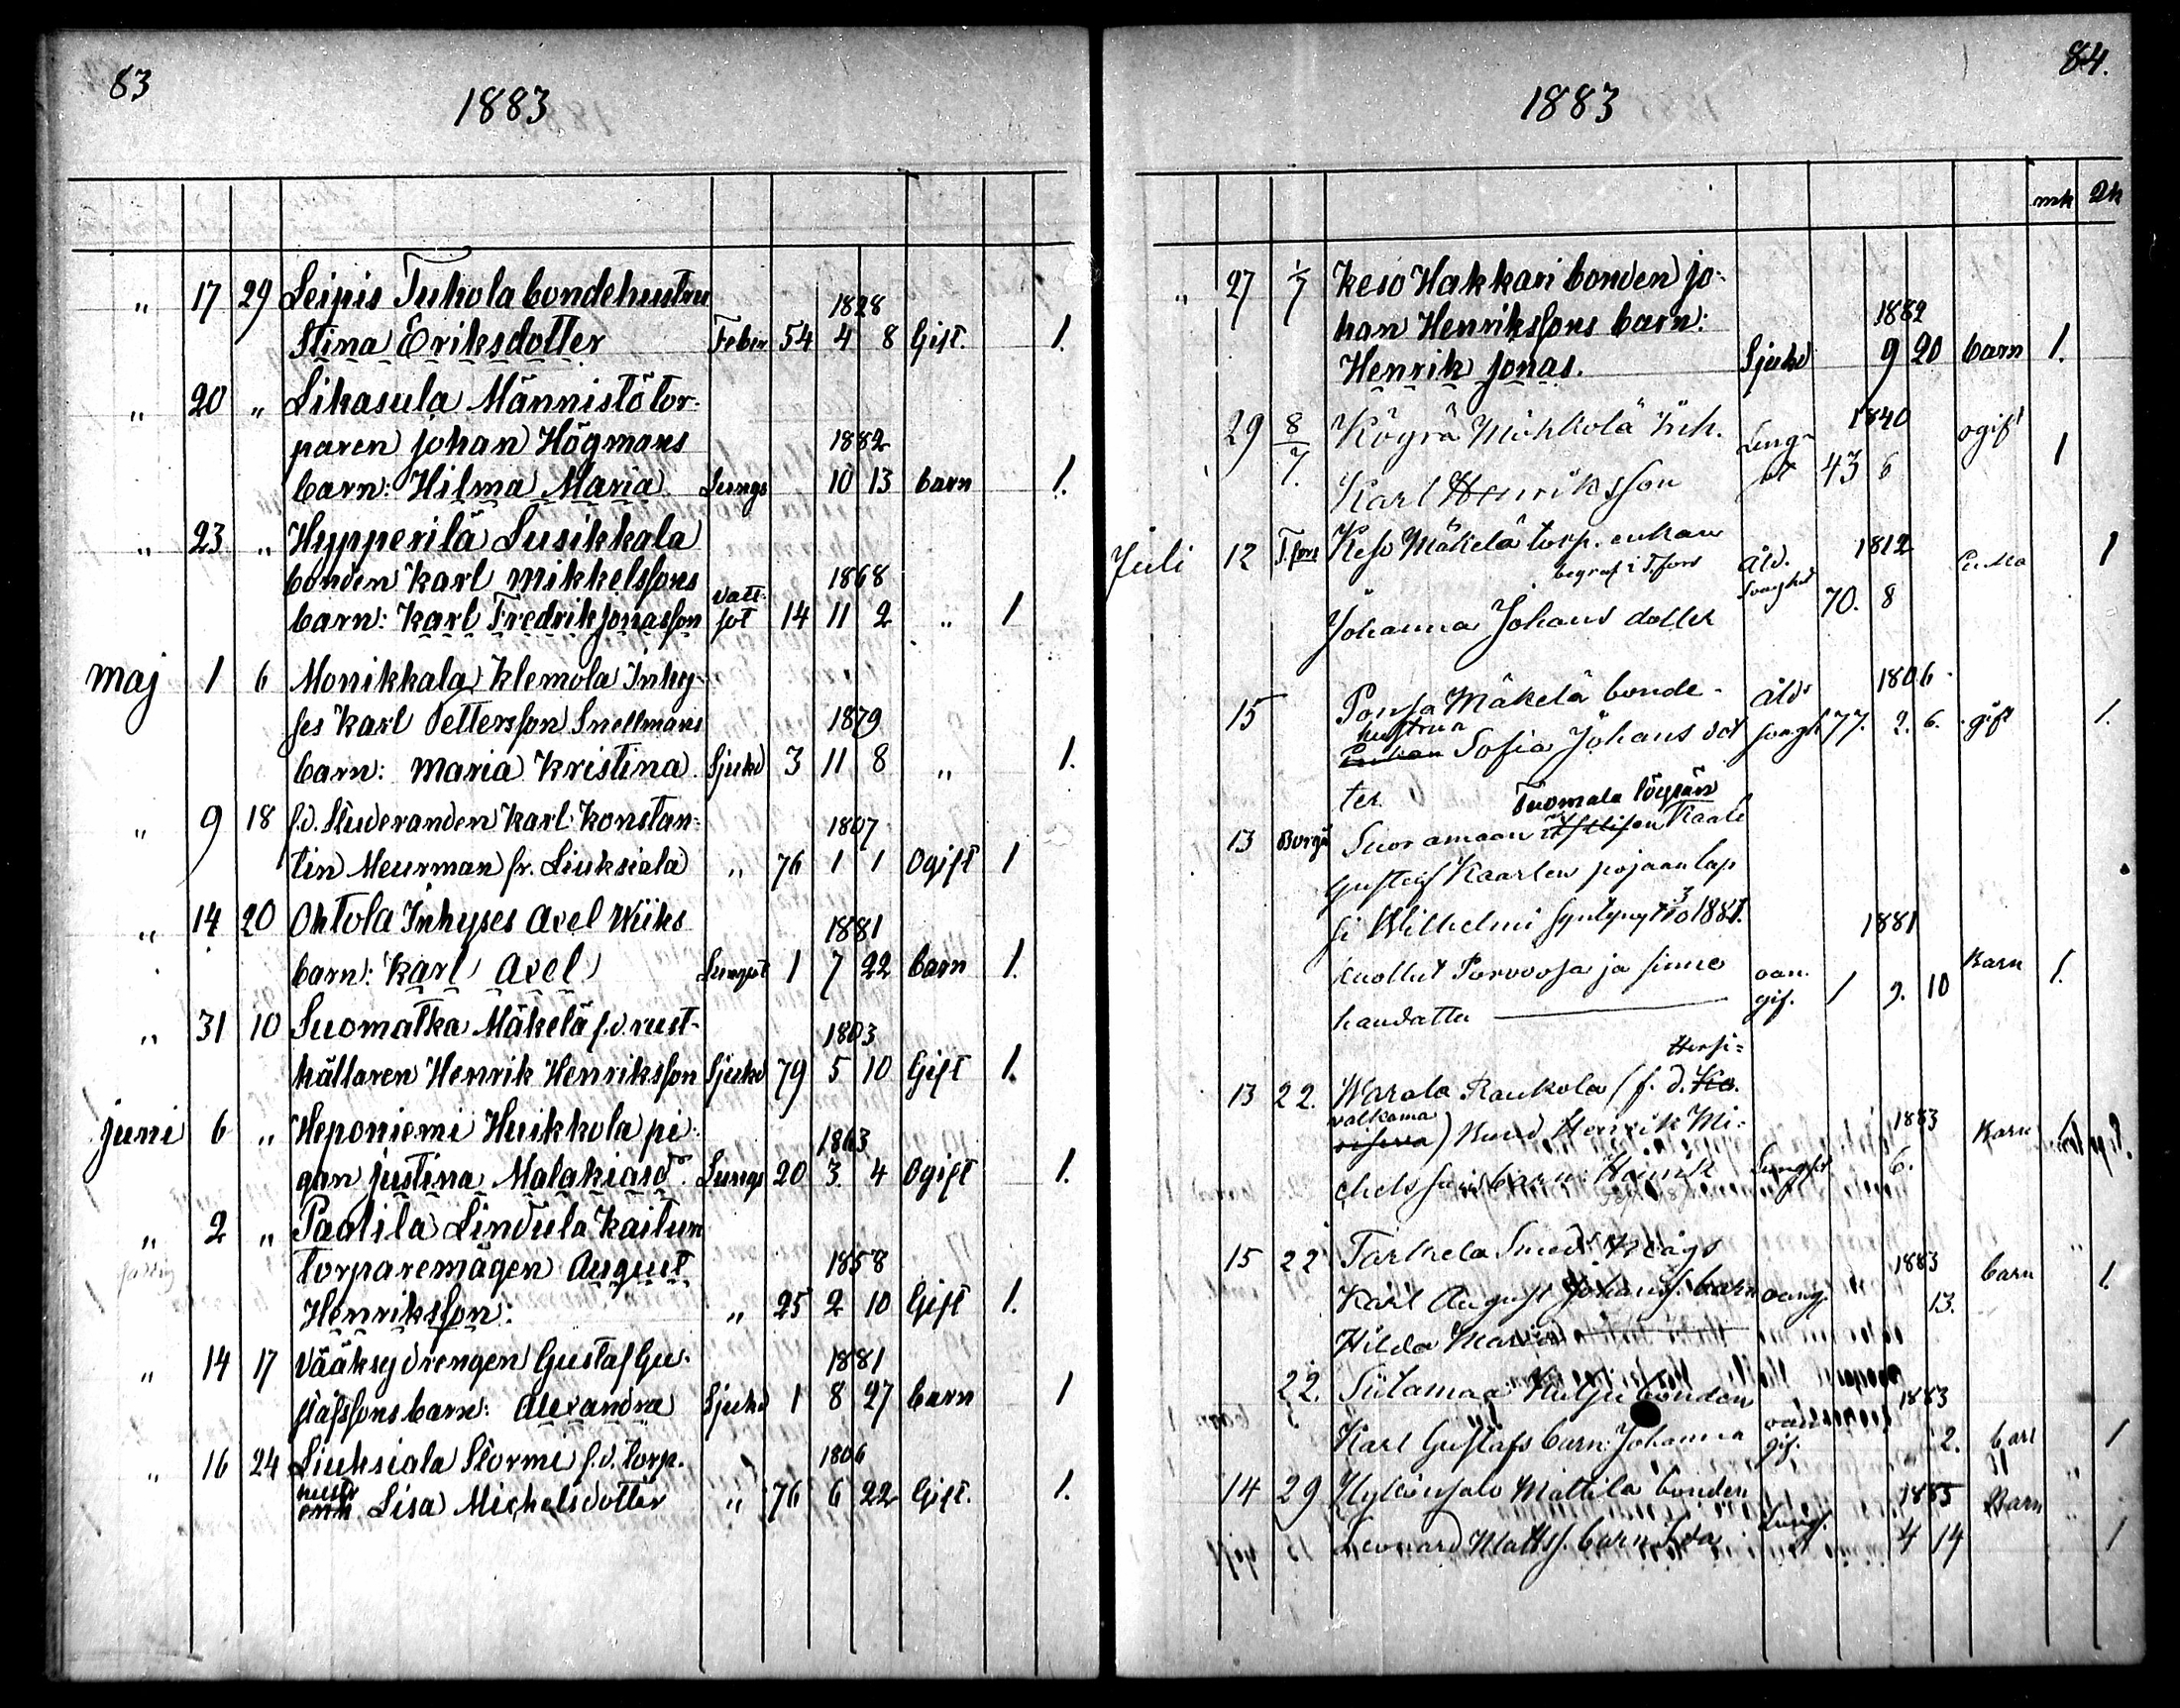 83
1883
" 17 29 Leipis Tukola bondehustru 1828
Stina Eriksdotter Feber 54 4 8 Gift. 1.
" 20 " Likasula Männistö tor-
paren Johan Högmans 1882
barn: Hilma Maria Lungs 10 13 barn 1.
" 23 " Hypperilä Lusikkala
bonden Karl Mikkelssons 1868
barn: Karl Fredrik Jonasson vatt- sot 14 11 2 " 1
Maj 1 6 Monikkala Klemola Inhy-
ses Karl Petterson Snellmans 1879
barn: Maria Kristina Sjukd 3 11 8 " 1.
" 9 18 f.d. Studeranden Karl Konstan- 1807
tin Meurman fr. Liuksiala " 76 1 1 Ogift 1
" 14 20 Ohtola Inhyses Axel Wiiks 1881
barn: Karl Axel Lungst 1 7 22 barn 1.
" 31 10 Suomatka Mäkelä f.d. rust- 1803
hållaren Henrik Henriksson Sjukd 79 5 10 Gift 1.
Juni 6 " Heponiemi Huikkola pi- 1863
gan Justina Malakiasd. Lungs 20 3. 4 Ogift 1.
" 2 " Paalila Lindula Kaitun
torparemågen August 1858
Henriksson: " 25 2 10 Gift 1.
" 14 17 Vääksy drengen Gustaf Gu- 1881
stafssons barn: Alexandra Sjukd 1 8 27 barn 1
" 16 24 Liuksiala Stormi f.d. torp. 1806
hustr
enk Lisa Michelsdotter " 76 6 22 Gift. 1.
84.
1883
mk Qk
" 27 1/7 Keso Hakkari bonden Jo-
han Henrikssons barn: 1882
Henrik Jonas. Sjukd 9 20 barn 1.
29 8/7. Köyrä Möhkölä Inh. Lungs 1840 ogift
Karl Henriksson ot 43 6 1
Juli 12 T.fors Keso Mäkelä torp. enkan Åld. 1812 Enka 1
begraf i T.fors
Johanna Johans dotter 70. 8
15 Ponsa Mäkelä bonde- Åld 1806.
hustrun
Enkan Sofia Johans dot 77. 2. 6. gift 1.
ter. Tuomala Löyrän
13 Borgå Suoramaan Kaale
Gustaf Kaarlen pojaan lap
si Wilhelmi syntynyt 3/10 1881. 1881
kuollut Porvoosa ja sinne oan gif. 1 9. 10 Barn 1.
haudattu
Hersi-
13 22. Warala Raukola (f. d. Ko.
valkama
) bond Henrik Mi- 1883 Barn
chelssons barn: Henrik Lungsot 6.
15 22 Tarkela Smeds Mågs 1883 barn
Karl August Johanss. barn oang. 13. 1
Hilda Maria
22. Siitamaa Hutju bonden 1883
Karl Gustafs barn: Johanna gif. 2. 1
14 29 Hyköusalo Mattila bonden 1883 Barn
Leonard Matss. barn Ida Lungs. 4 14 1